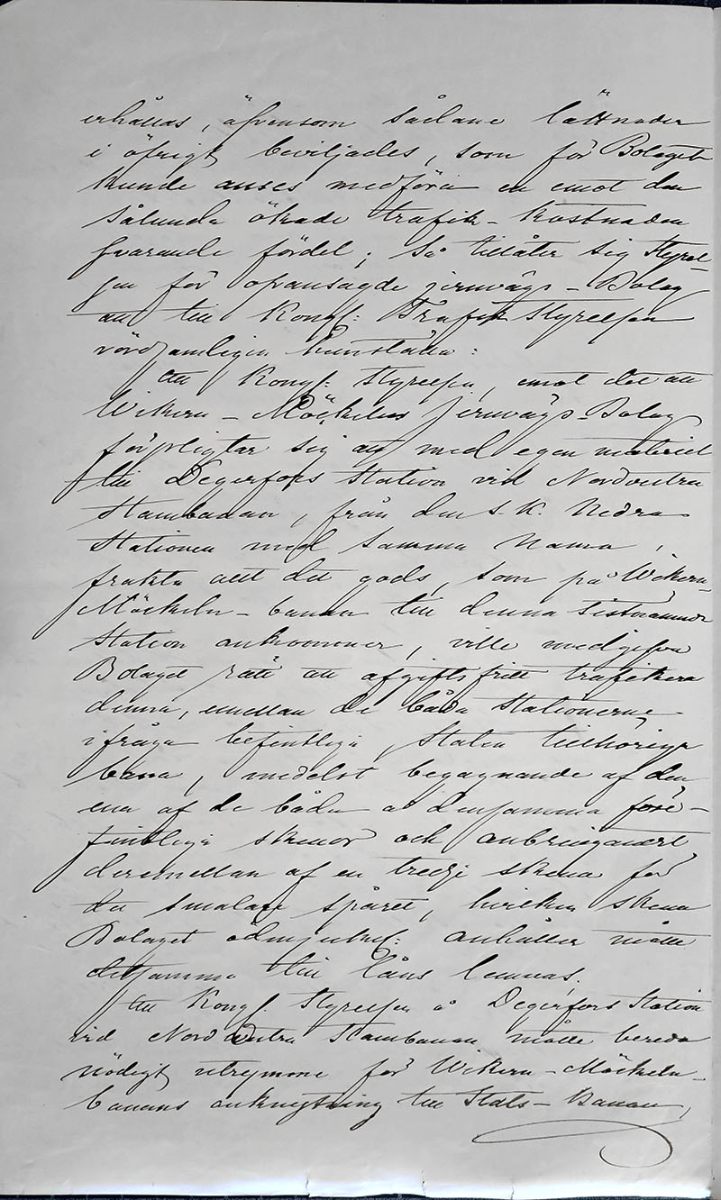 erhållas, äfvensom sådane lättnader
i öfrigt beviljades, som för Bolaget
kunde anses medföra en emot den
sålunda ökade trafik-kostnaden
svarande fördel; så tillåter sig Styrel-
sen för ofvansagde jernvägs-Bolag
att till Kongl: Trafik Styrelsen
vördsamligen hemställa:
att Kongl: Styrelsen, emot det att
Wikern-Möckelns jernvägs-Bolag
förpligtar sig att med egen materiel
till Degerfors Station vid Nordvestra
Stambanan, från den s.k. Nedra
Stationen med samma Namn,
frakta allt det gods, som på Wikern-
Möckeln-banan till denna sistnämnde
Station ankommer, ville medgifva
Bolaget rätt att afgiftsfritt trafikera
denna, emellan de båda Stationerne
ifråga befintliga, Staten tillhöriga
bana, medelst begagnande af den
ena af de båda å densamma före-
fintliga skenor och anbringandet
deremellan af en tredje skena för
det smalare spåret, hvilken skena
Bolaget ödmjukel: anhåller måtte
detsamma till låns lemnas;
att Kongl. Styrelsen å Degerfors Station
vid Nordvestra Stambanan måtte bereda
nödigt utrymme för Wikern-Möckeln-
banans anknytning till Stats-banan,